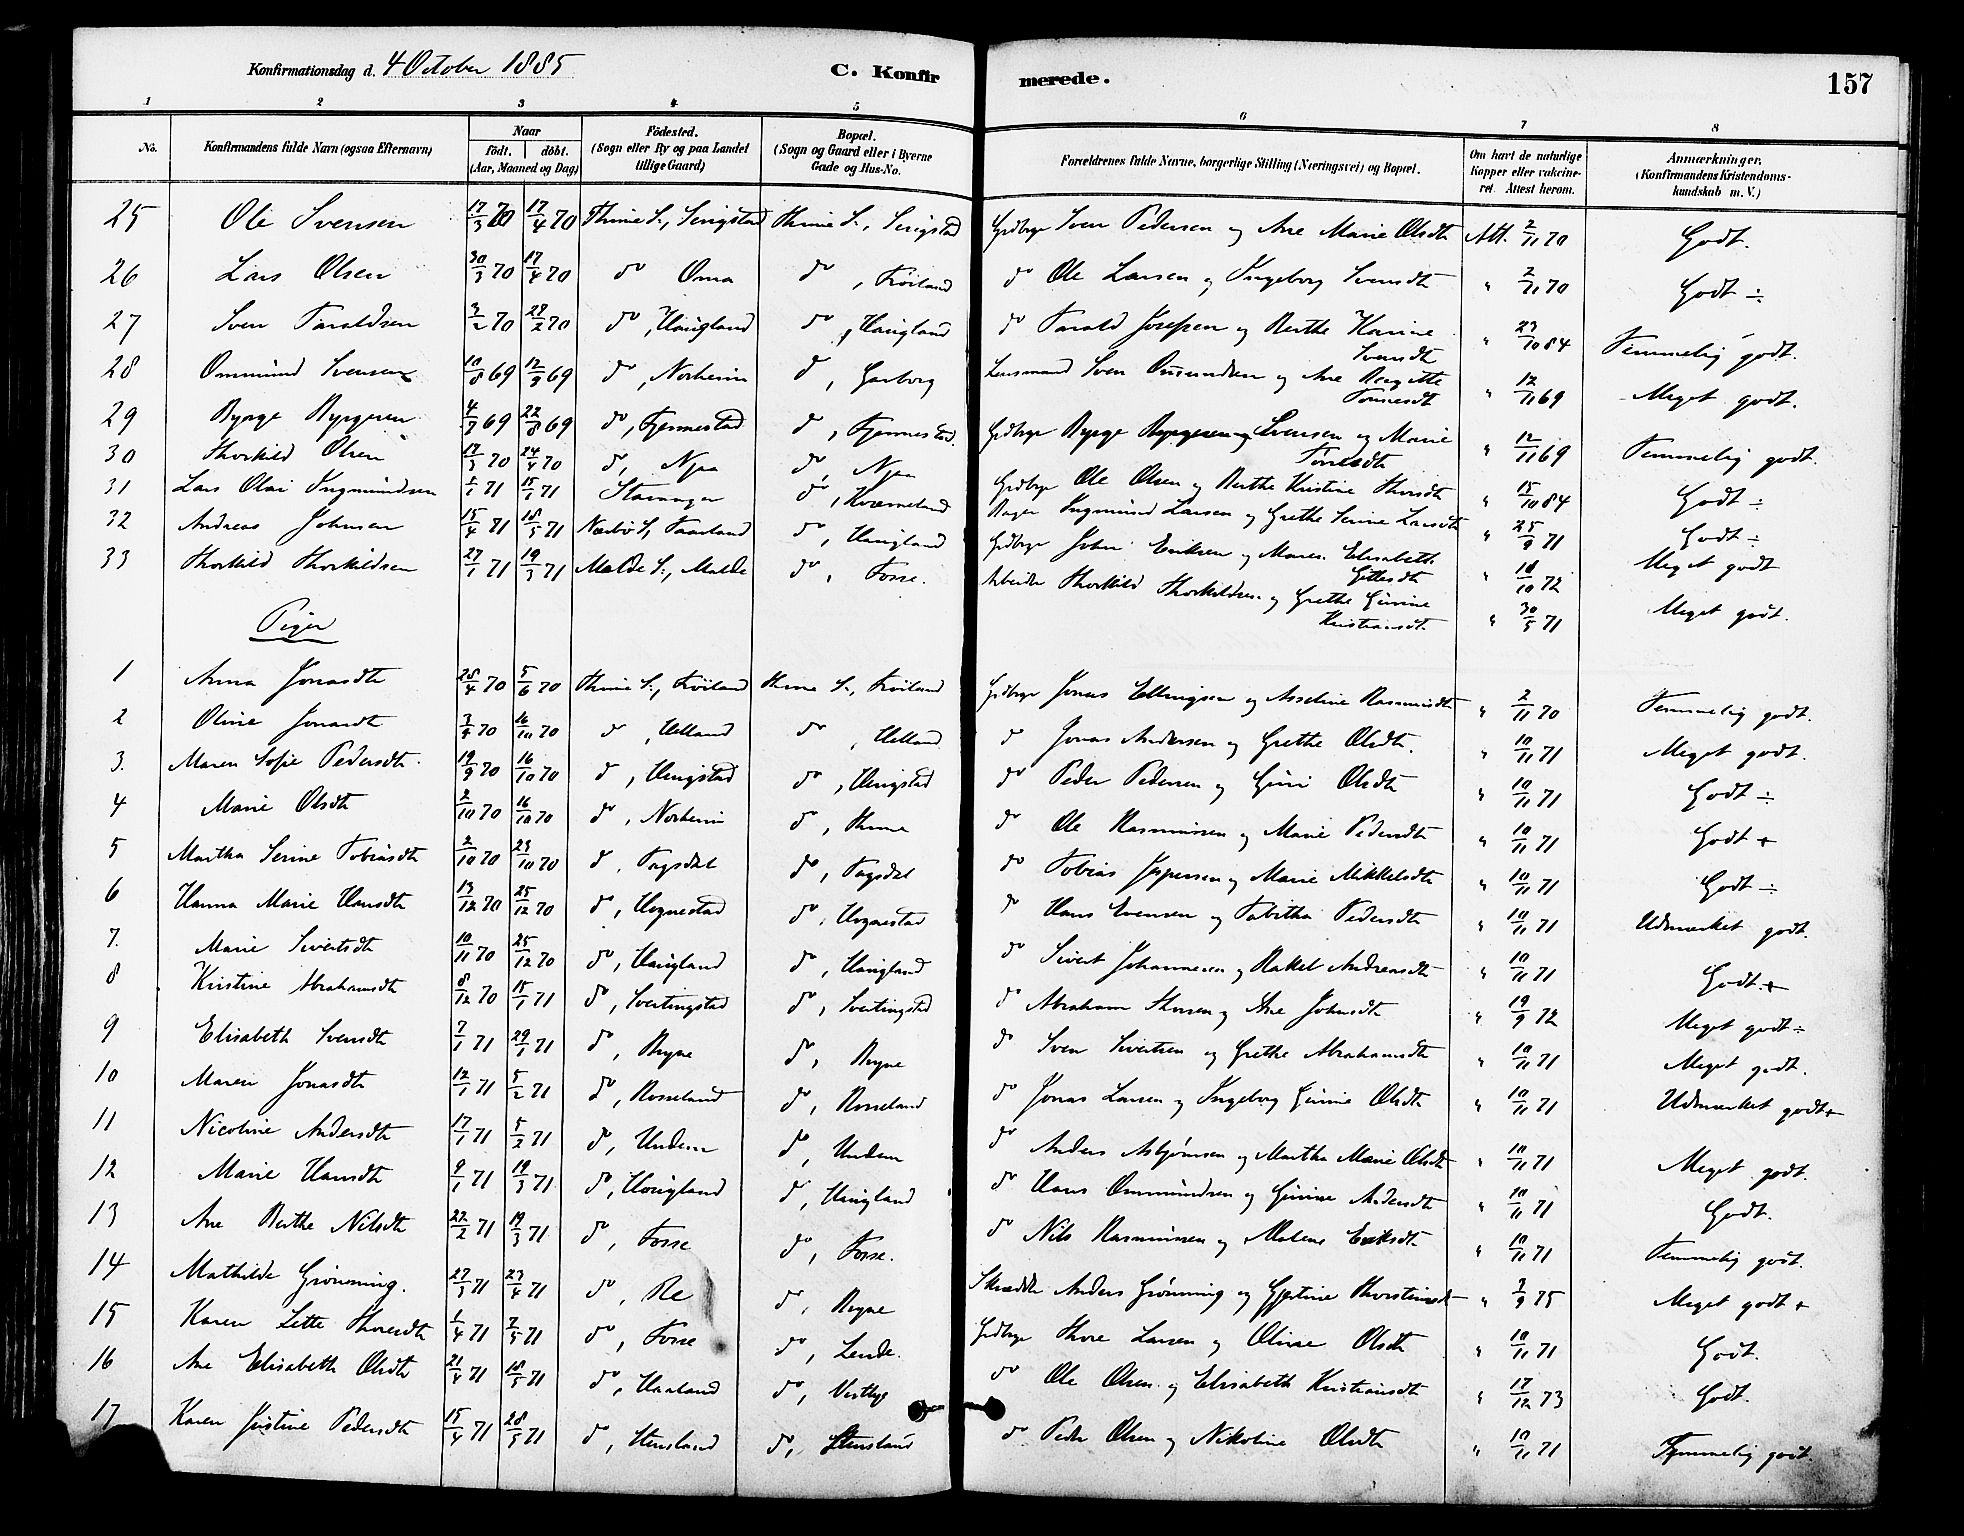 Konfirmationsdag d. 4 October 1885 C. Konfirmerede. 157
1 2 3 4 5 6 7 8
No. Konfirmandens fulde Navn (ogsaa Efternavn) Naar født. døbt. (Aar, Maaned og Dag) Fødested. (Sogn eller By og paa Landet tillige Gaard) Bopæl. (Sogn og Gaard eller i Byerne Gade og Hus-No. Forældrenes fulde Navne, borgerlige Stilling (Næringsvei) og Bopæl. Om havt de naturlige Kopper eller vaccineret. Attest herom. Anmærkninger. (Konfirmandens Kristendomskundskab m. V.)
25 Ole Svensen 17/3 70 17/4 70 Thime S., Serigstad Thime S., Serigstad Grdbrgr Sven Pedersen og Ane Marie Olsdtr Att. 2/11 70 Godt.
26 Lars Olsen 30/3 70 17/4 70 do Oma do, Frøiland do Ole Larsen og Ingeborg Svensdtr " 2/11 70 Godt ÷
27 Sven Taraldsen 3/2 70 27/2 70 do, Haugland do, Haugland do Tarald Josefsen og Berthe Karine Svensdtr " 23/10 84 Temmelig godt.
28 Ommund Svensen 10/8 69 12/9 69 do, Norheim do, Garborg Lensmand Sven Omundsen og Ane Bergitte Tønnesdtr " 12/11 69 Meget godt.
29 Byrge Byrgesen 4/7 69 22/8 69 do, Fjermestad do, Fjermestad. Grdbrgr Byrge Svensen og Marie Torresdtr " 12/11 69 Temmelig godt.
30 Thorkild Olsen 17/3 70 24/4 70 do, Njaa do, Njaa Grdbrgr Ole Olsen og Berthe Kristine Thorsdtr " 15/10 84 Godt ÷
31 Lars Olai Ingmundsen 2/1 71 15/1 71 Stavanger do, Kværneland Bager Ingmund Larsen og Grethe Serine Larsdtr " 25/9 71 Godt ÷
32 Andreas Johnsen 15/4 71 18/5 71 Nærbø S., Taarland do, Haugland Grdbrgr John Eriksen og Maren Elisabeth Gitlesdtr " 18/10 72 Meget godt
33 Thorkild Thorkildsen 27/1 71 19/3 71 Malde S., Malde do, Fosse. Arbeider Thorkild Thorkildsen og Grethe Gurine Kristiansdtr " 30/5 71 Meget godt.
Piger
1 Anna Jonasdtr 28/4 70 5/6 70 Thime S., Frøiland Thime S., Frøiland Grdbrgr Jonas Ellingsen og Asseline Rasmusdtr " 2/11 70 Temmelig godt.
2 Oline Jonasdtr 3/9 70 16/10 70 do, Helland do, Helland do Jonas Andersen og Grethe Olsdtr. " 10/11 71 Meget godt.
3. Maren Sofie Pedersdtr. 19/9 70 16/10 70 do, Hengistad do, Hengistad do Peder Pedersen og Guri Olsdtr " 10/11 71 Godt ÷
4 Marie Olsdtr 2/10 70 16/10 70 do, Norheim do, Thime do Ole Rasmussen og Marie Pedersdtr " 10/11 71 Godt +
5 Martha Serine Tobiasdtr 2/10 70 23/10 70 do, Fagsdal do, Fagsdal do Tobias Jespersen og Marie Mikkelsdtr " 10/11 71 Godt ÷
6 Hanna Marie Hansdtr 13/12 70 25/12 70 do, Hognestad do, Hognestad do Hans Evensen og Tabitha Pedersdtr " 10/11 71 Udmærket godt.
7. Marie Sivertsdtr 10/11 70 25/12 70 do, Haugland do, Haugland do Sivert Johannesen og Rakel Andreasdtr " 10/11 71 Godt. +
8 Kristine Abrahamsdtr 8/12 70 15/1 71 do, Svertingstad do, Svertingstad do Abraham Thorsen og Ane Johnsdtr " 19/9 72 Meget godt ÷
9 Elisabeth Svensdtr 7/1 71 29/1 71 do, Bryne do, Bryne do Sven Sivertsen og Grethe Abrahamsdtr " 10/11 71 Meget godt.
10 Maren Jonasdtr 12/1 71 5/2 71 do, Rosseland do, Rosseland do Jonas Larsen og Ingeborg Gurine Olsdtr " 10/11 71 Udmærket godt +
11 Nicoline Andersdtr 17/1 71 5/2 71 do, Undem do, Undem do Anders Asbjørnsen og Martha Marie Olsdtr " 10/11 71 Meget godt.
12 Marie Hansdtr 9/1 71 19/3 71 do, Haugland do, Haugland do Hans Ommundsen og Gurine Andersdtr " 10/11 71 Godt.
13 Ane Berthe Nilsdtr 22/2 71 19/3 71 do, Fosse do, Fosse. do Nils Rasmussen og Malene Eriksdtr " 10/11 71 Temmelig godt.
14 Mathilde Grønning. 27/3 71 23/4 71 do, Re do, Bryne Skrædder Anders Grønning og Gjertine Thorsteinsdtr " 3/9 75 Meget godt +
15 Karen Lette Thoresdtr 1/4 71 7/5 71 do, Fosse do, Lende. Grdbrgr Thore Larsen og Oline Olsdtr " 10/11 71 Godt.
16 Ane Elisabeth Olsdtr 21/4 71 18/5 71 do, Haaland do, Vestlye do Ole Olsen og Elisabeth Kristiansdtr " 17/12 73 Godt.
17 Karen Justine Pedersdtr 15/4 71 28/5 71 do, Stensland do, Stensland do Peder Olsen og Nikoline Olsdtr " 10/11 71 Temmelig godt.